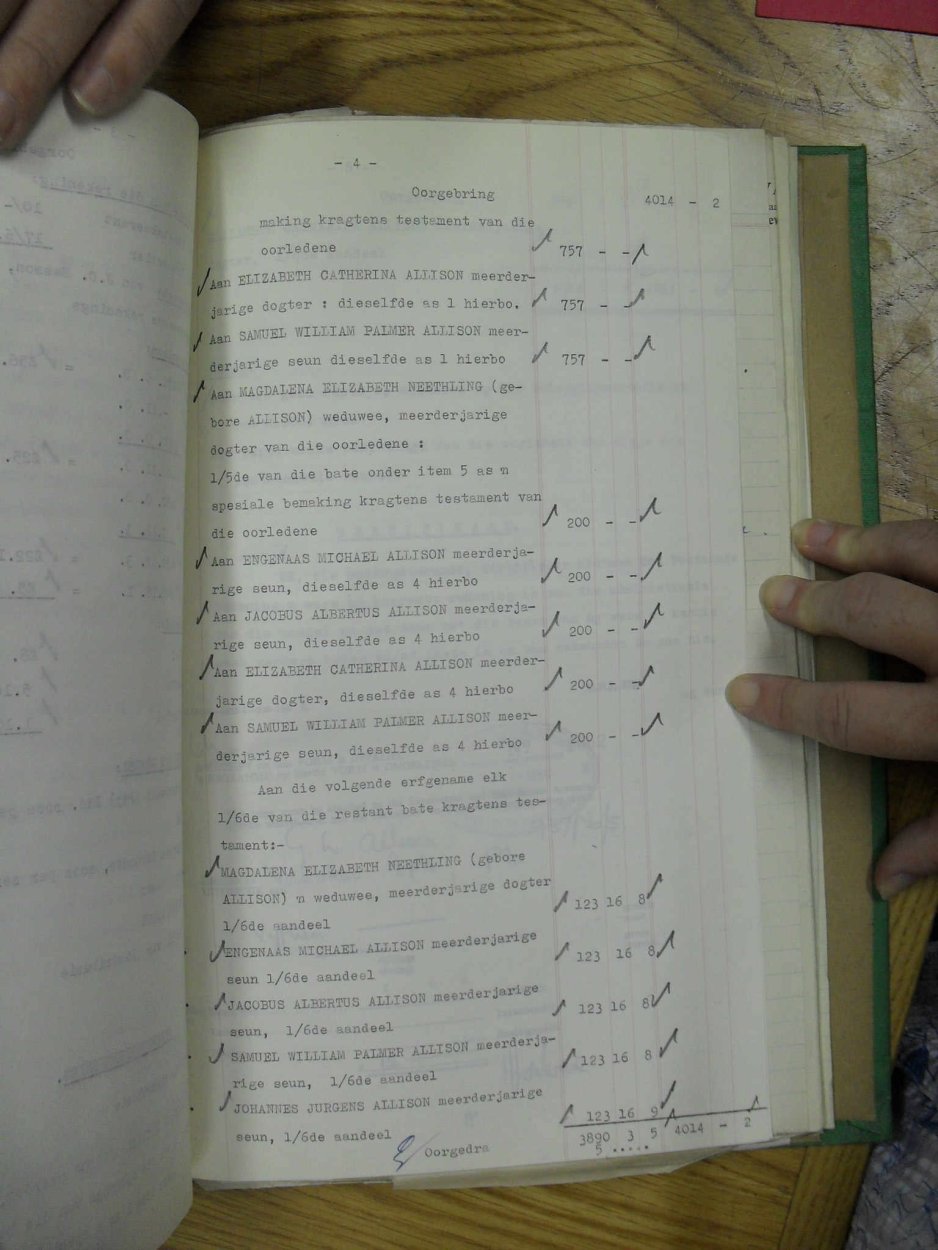 - 4 -
Oorgebring 4014 - 2
making kragtens testament van die
oorledene 757 - -
Aan ELIZABETH CATHERINA ALLISON meerder-
jarige dogter : dieselfde as 1 hierbo. 757 - -
Aan SAMUEL WILLIAM PALMER ALLISON meer-
derjarige seun dieselfde as 1 hierbo 757 - -
Aan MAGDALENA ELIZABETH NEETHLING (ge-
bore ALLISON) weduwee, meerderjarige
dogter van die oorledene :
1/5de van die bate onder item 5 as 'n
spesiale bemaking kragtens testament van
die oorledene 200 - -
Aan ENGENAAS MICHAEL ALLISON meerderja-
rige seun, dieselfde as 4 hierbo 200 - -
Aan JACOBUS ALBERTUS ALLISON meerderja-
rige seun, dieselfde as 4 hierbo 200 - -
Aan ELIZABETH CATHERINA ALLISON meerder-
jarige dogter, dieselfde as 4 hierbo 200 - -
Aan SAMUEL WILLIAM PALMER ALLISON meer-
derjarige seun, dieselfde as 4 hierbo 200 - -
Aan die volgende erfgename elk
1/6de van die restant bate kragtens tes-
tament:-
MAGDALENA ELIZABETH NEETHLING (gebore
ALLISON) 'n weduwee, meerderjarige dogter
1/6de aandeel 123 16 8
ENGENAAS MICHAEL ALLISON meerderjarige
seun 1/6de aandeel 123 16 8
JACOBUS ALBERTUS ALLISON meerderjarige
seun, 1/6de aandeel 123 16 8
SAMUEL WILLIAM PALMER ALLISON meerderja-
rige seun, 1/6de aandeel 123 16 8
JOHANNES JURGENS ALLISON meerderjarige
seun, 1/6de aandeel 123 16 9
Oorgedra 3890 3 5 4014 - 2
5 .....